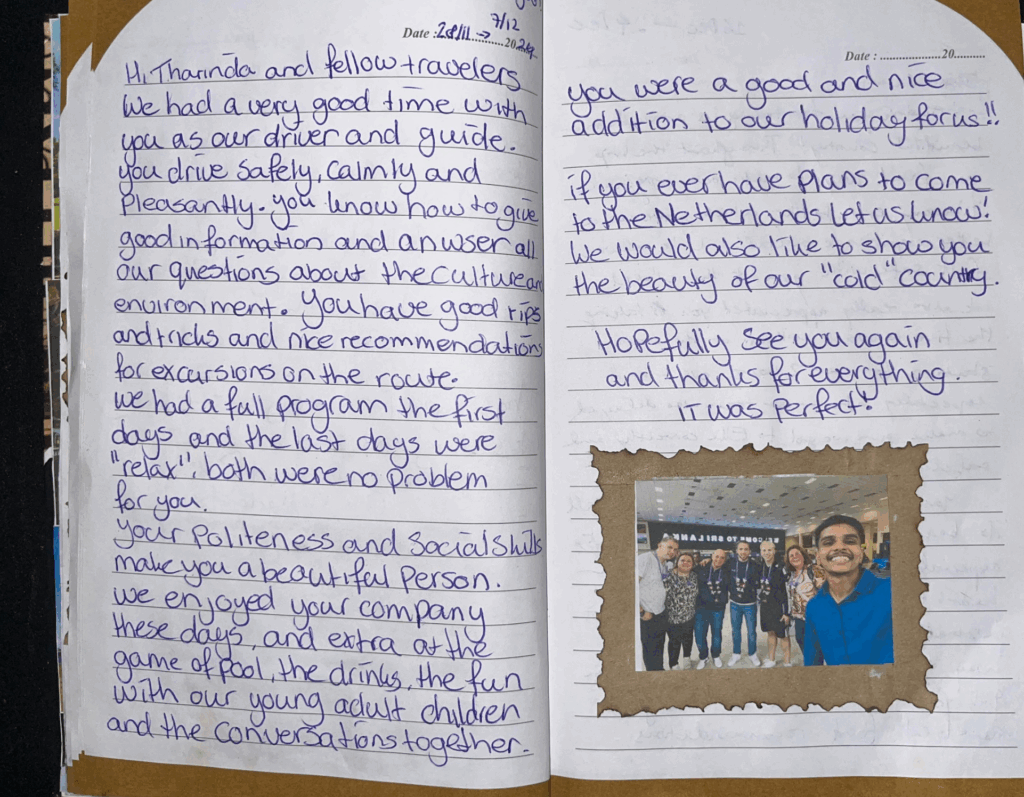 Date : 28/11 → 7/12 2024
Hi Tharinda and fellow travelers
We had a very good time with
you as our driver and guide.
you drive safely, calmly and
pleasantly. you know how to give
good information and anwser all
our questions about the culture an
environment. You have good tips
and tricks and nice recommendations
for excursions on the route.
we had a full program the first
days and the last days were
"relax", both were no problem
for you.
your politeness and social skills
make you a beautiful person.
we enjoyed your company
these days, and extra at the
game of pool, the drinks, the fun
with our young adult children
and the conversations together.
Date : ....................20..........
you were a good and nice
addition to our holiday for us!!
if you ever have plans to come
to the Netherlands let us know!
We would also like to show you
the beauty of our "cold" country.
Hopefully see you again
and thanks for everything.
IT was perfect!
WELCOME TO SRI LANK